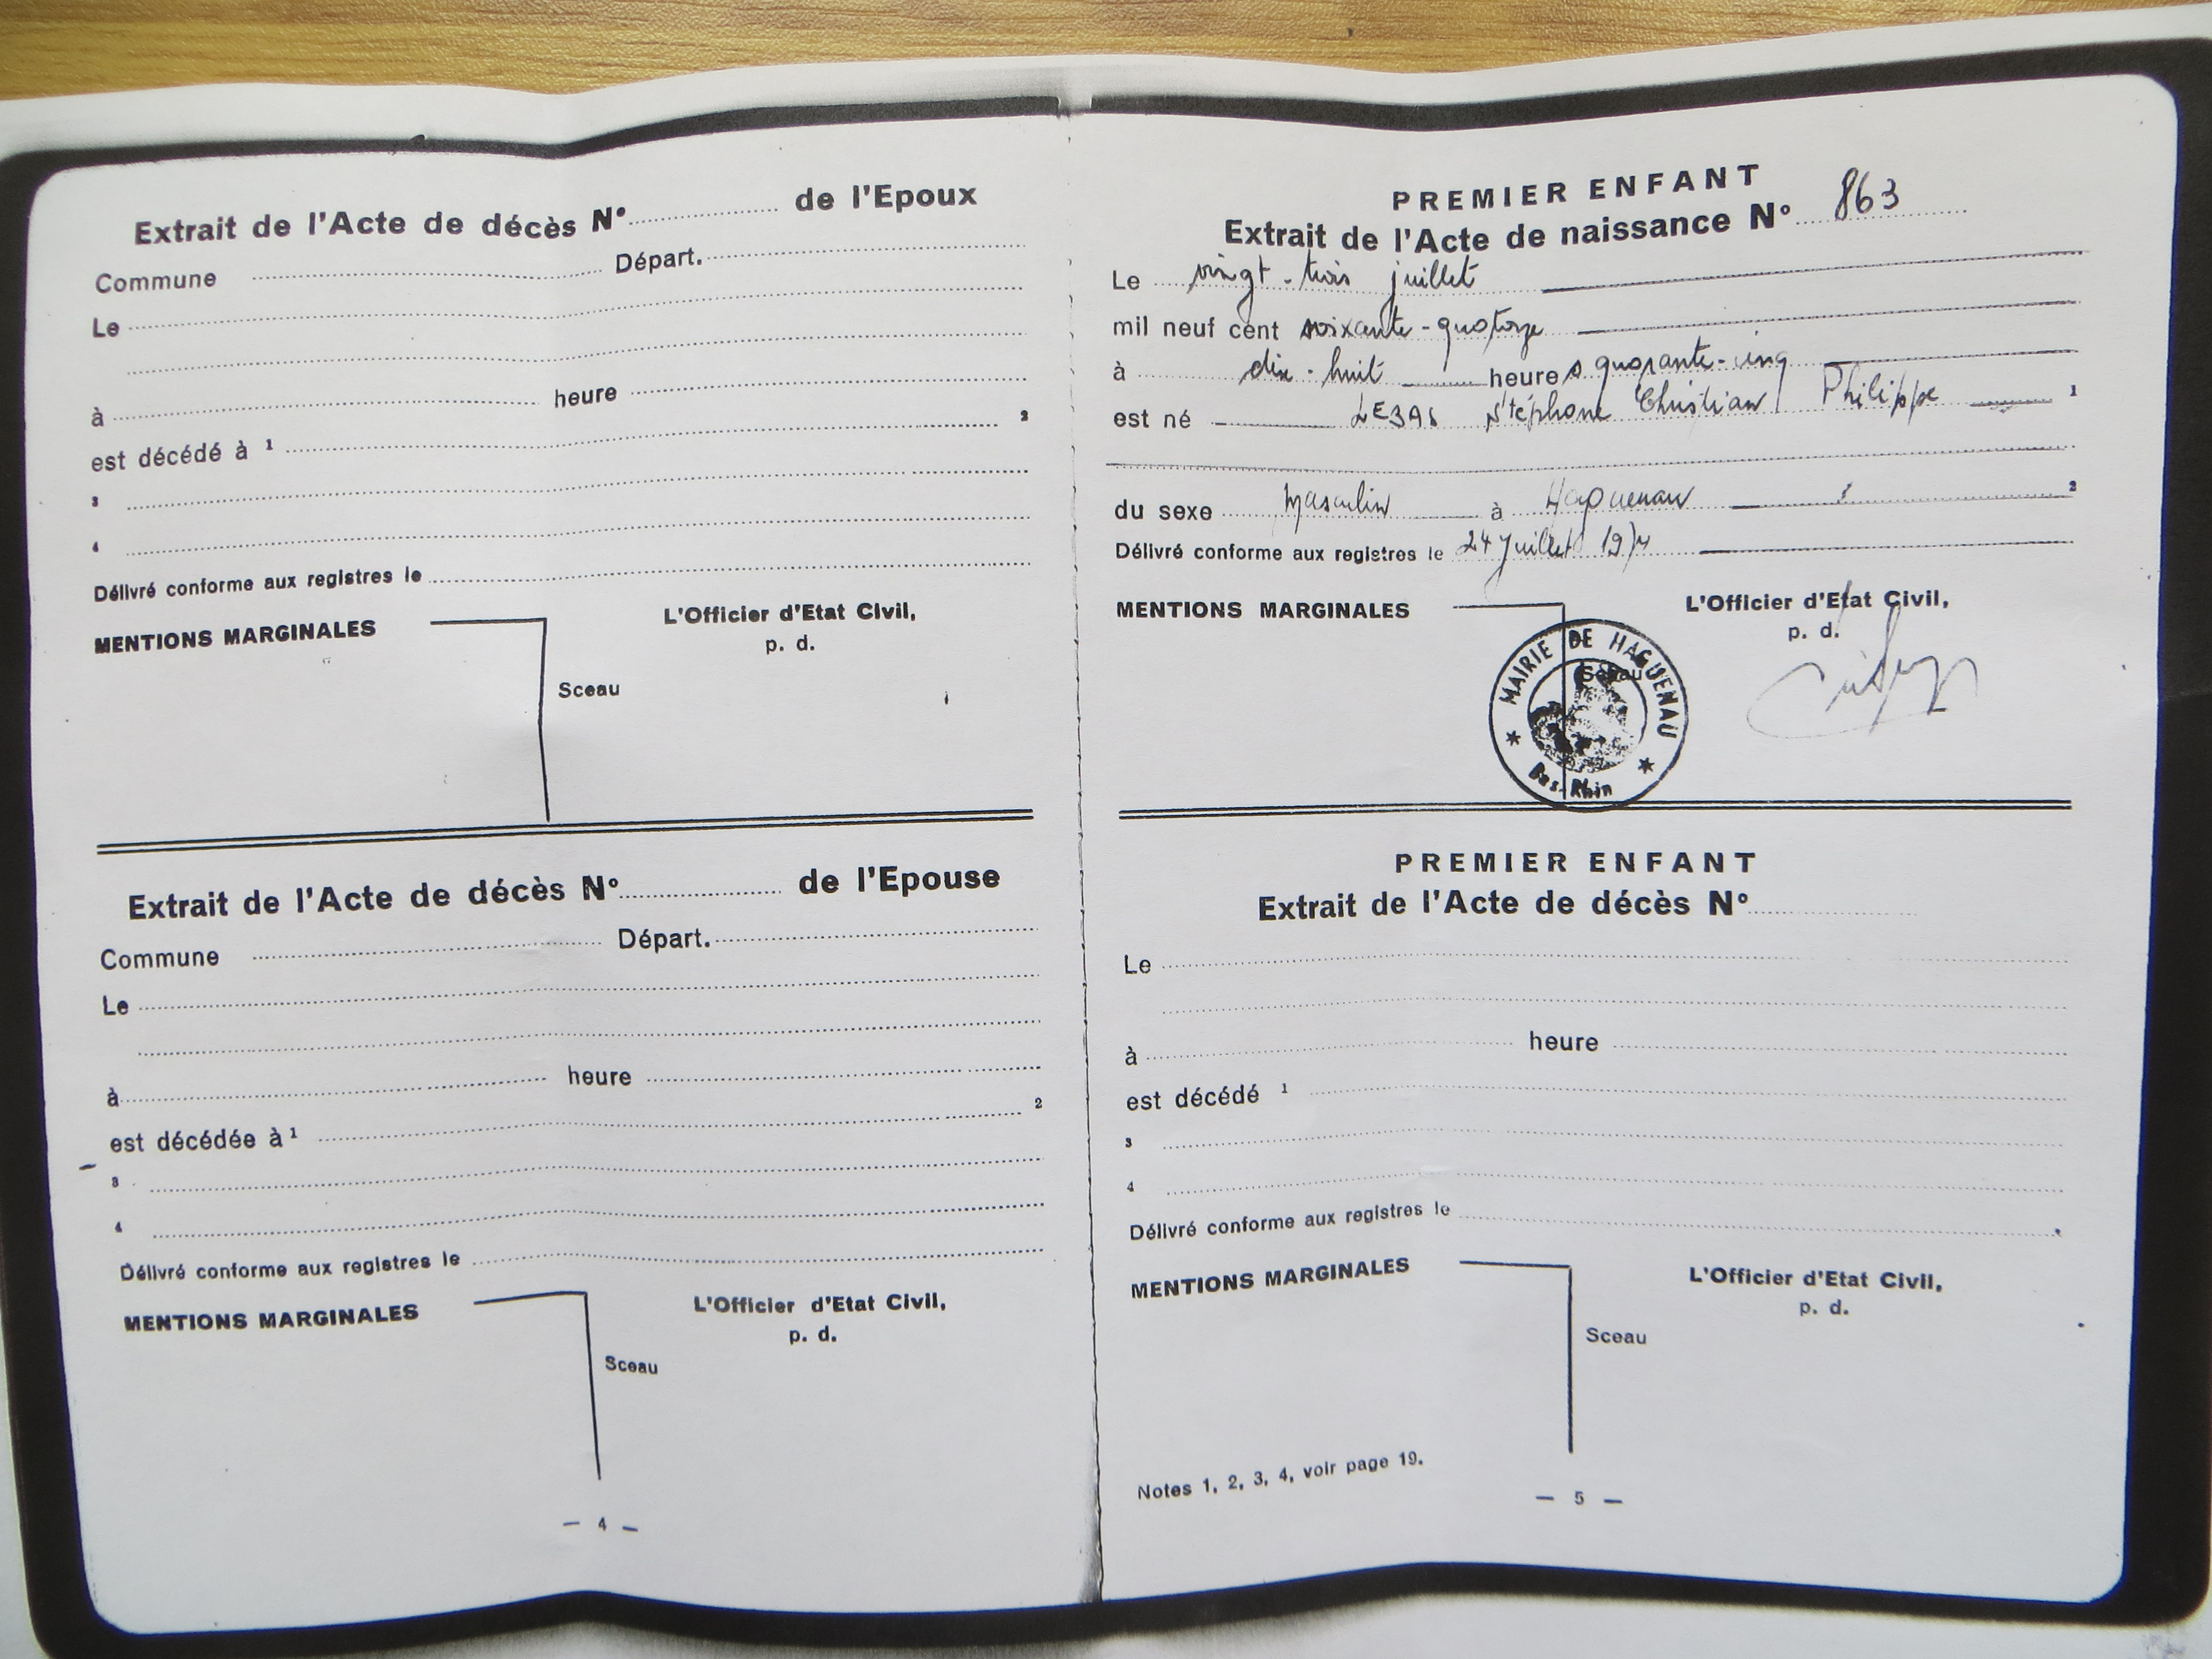 Extrait de l'Acte de décès N° de l'Epoux
Commune Départ.
Le
à heure
est décédé à 1 2
3
4
Délivré conforme aux registres le
MENTIONS MARGINALES
L'Officier d'Etat Civil,
p. d.
Sceau
Extrait de l'Acte de décès N° de l'Epouse
Commune Départ.
Le
à heure
est décédée à 1 2
3
4
Délivré conforme aux registres le
MENTIONS MARGINALES
L'Officier d'Etat Civil,
p. d.
Sceau
— 4 —
PREMIER ENFANT
Extrait de l'Acte de naissance N° 863
Le vingt-trois juillet
mil neuf cent soixante-quatorze
à dix-huit heures quarante-cinq
est né Stéphane Christian Philippe 1
du sexe Masculin à Haguenau 2
Délivré conforme aux registres le 24 juillet 1974
MENTIONS MARGINALES
L'Officier d'Etat Civil,
p. d.
Sceau
MAIRIE DE HAGUENAU
Bas-Rhin
PREMIER ENFANT
Extrait de l'Acte de décès N°
Le
à heure
est décédé 1
3
4
Délivré conforme aux registres le
MENTIONS MARGINALES
L'Officier d'Etat Civil,
p. d.
Sceau
Notes 1, 2, 3, 4, voir page 19.
— 5 —